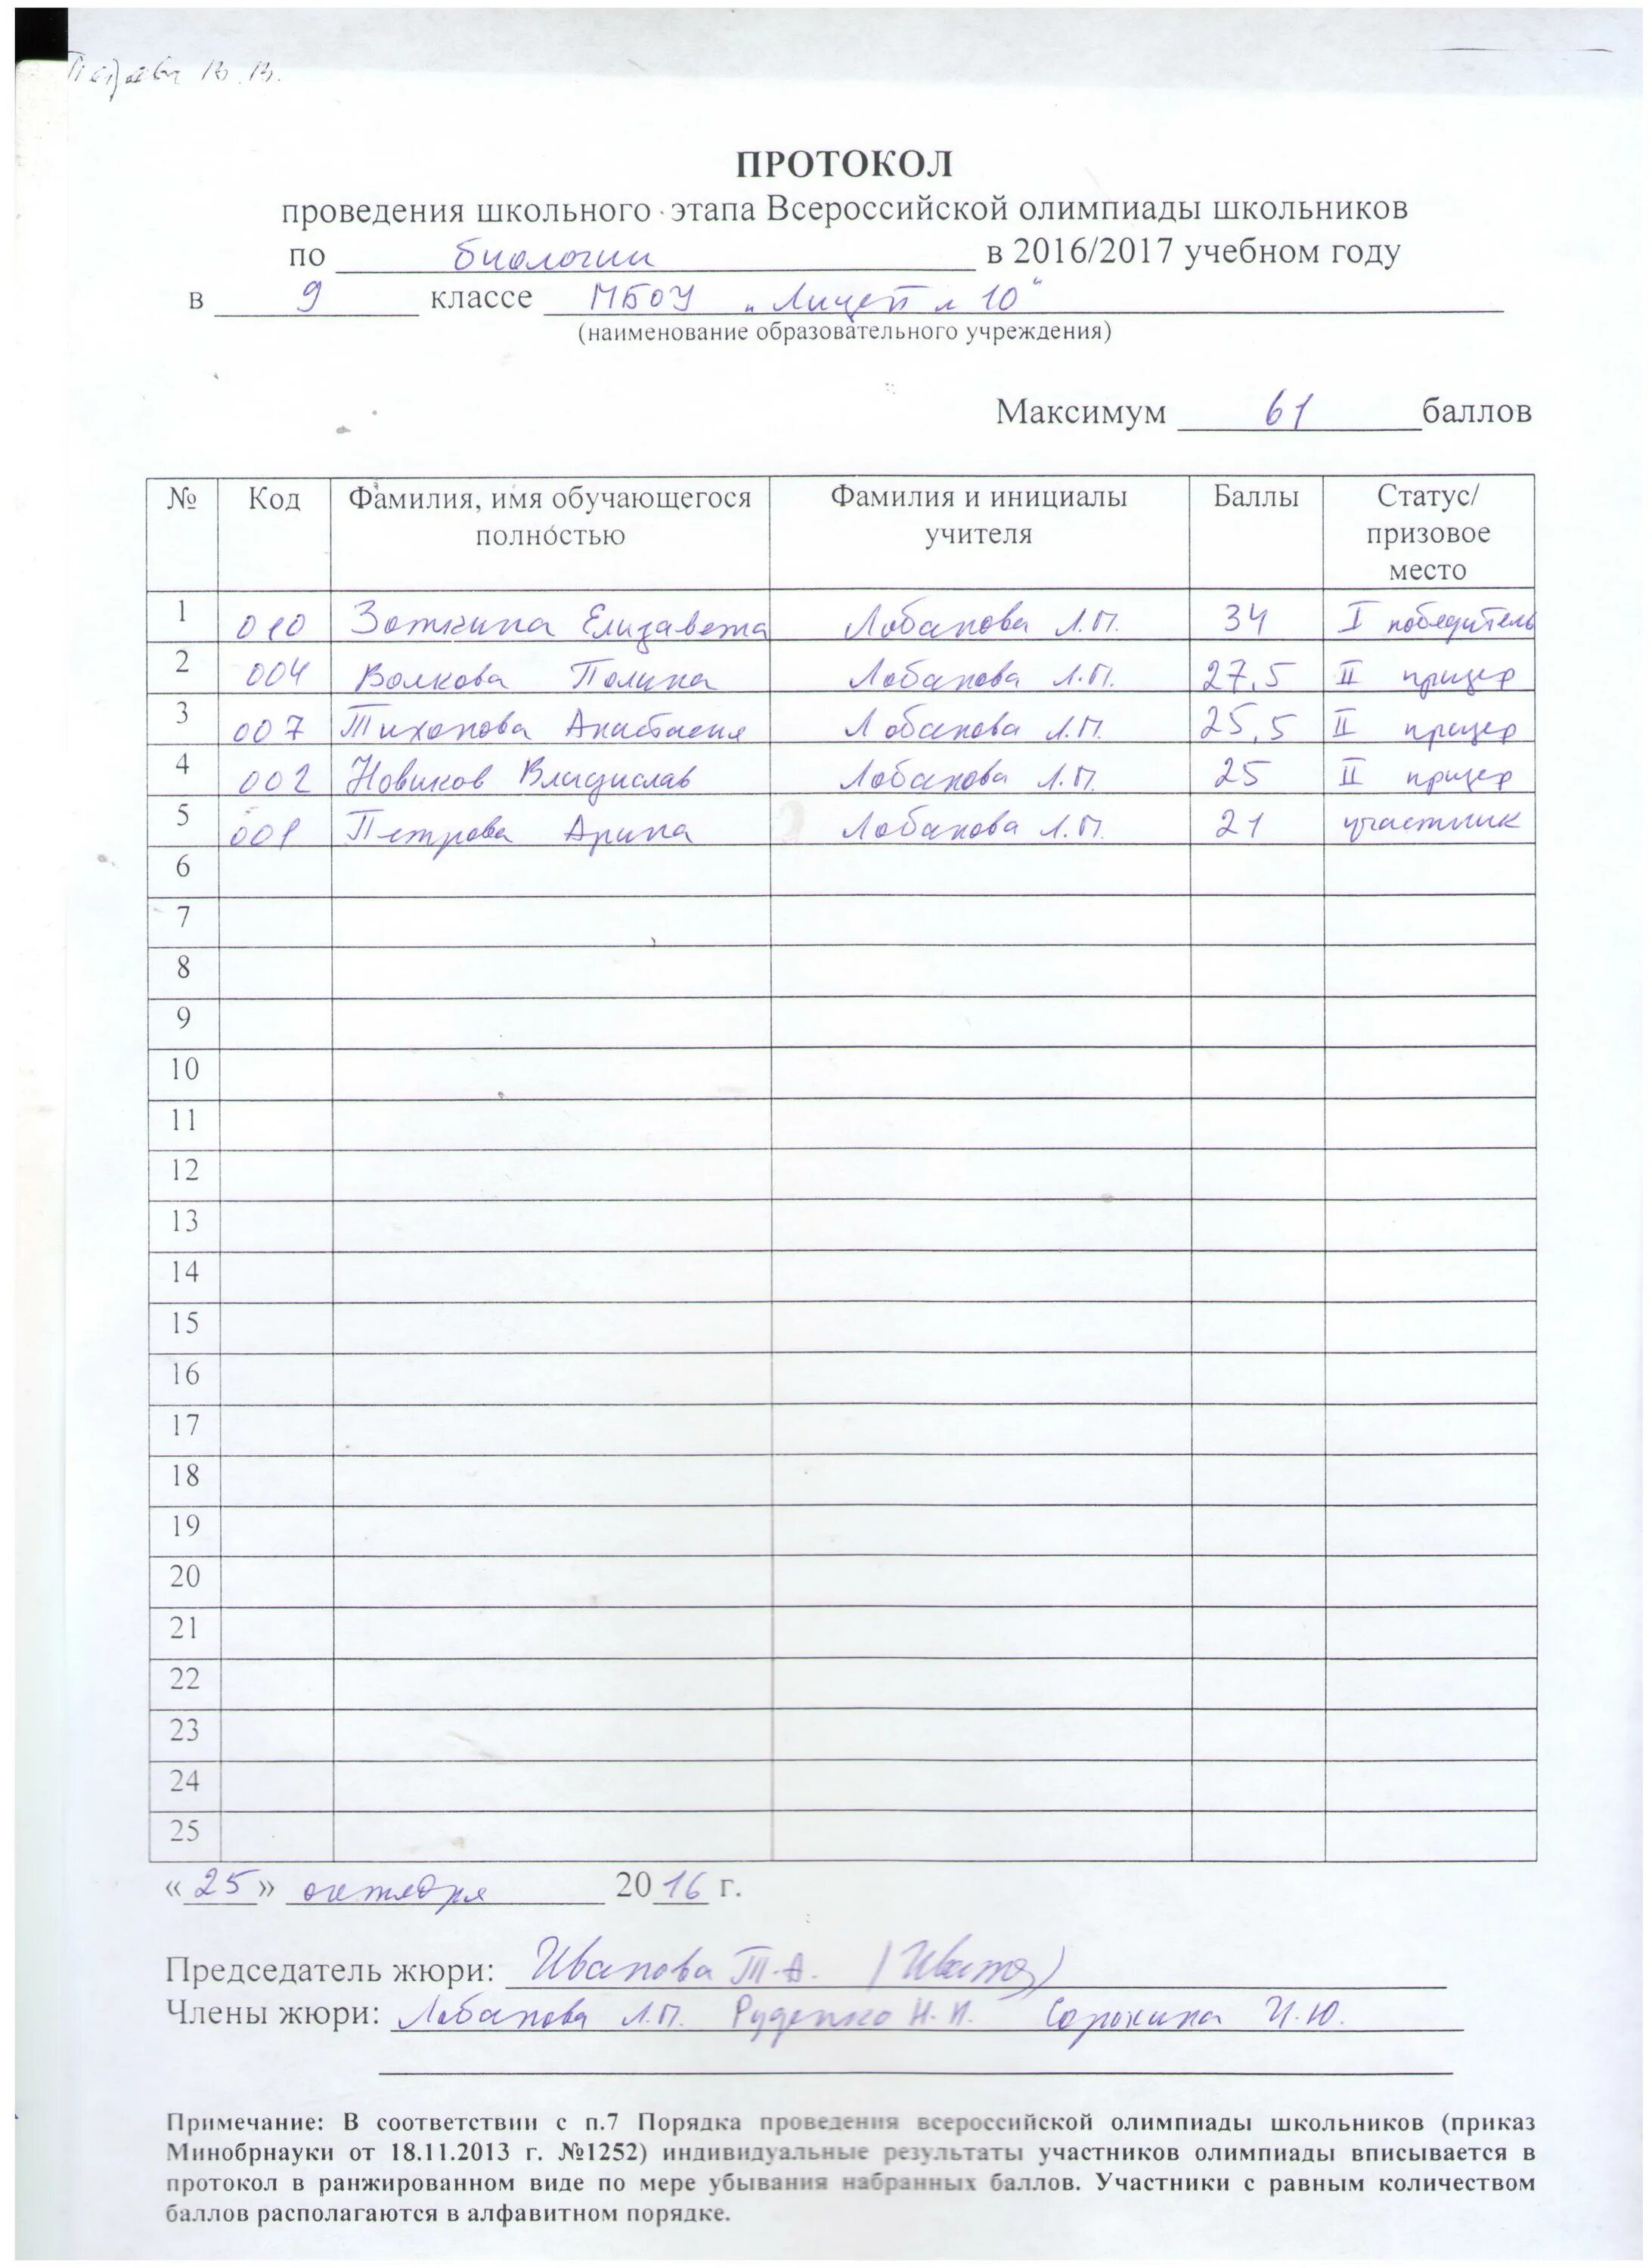 В. В.
ПРОТОКОЛ
проведения школьного этапа Всероссийской олимпиады школьников
по биологии в 2016/2017 учебном году
в 9 классе МБОУ „Лицей № 10"
(наименование образовательного учреждения)
Максимум 61 баллов
№ Код Фамилия, имя обучающегося полностью Фамилия и инициалы учителя Баллы Статус/ призовое место
1 010 Зоткина Елизавета Лобанова Л.П. 34 I победитель
2 004 Волкова Полина Лобанова Л.П. 27,5 II призер
3 007 Тихонова Анастасия Лобанова Л.П. 25,5 II призер
4 002 Новиков Владислав Лобанова Л.П. 25 II призер
5 001 Петрова Арина Лобанова Л.П. 21 участник
6
7
8
9
10
11
12
13
14
15
16
17
18
19
20
21
22
23
24
25
«25» октября 2016 г.
Председатель жюри: Иванова Т.А. (Иванова)
Члены жюри: Лобанова Л.П. Руденко Н.И. Сорокина И.Ю.
Примечание: В соответствии с п.7 Порядка проведения всероссийской олимпиады школьников (приказ
Минобрнауки от 18.11.2013 г. №1252) индивидуальные результаты участников олимпиады вписывается в
протокол в ранжированном виде по мере убывания набранных баллов. Участники с равным количеством
баллов располагаются в алфавитном порядке.